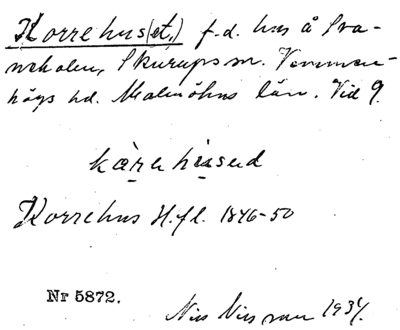 Korrehus(et,) f.d. hus å Sva-
neholm, Skurups sn. Vemmen-
högs hd. Malmöhus län. Vid 9.
kàrehìsed
Korrehus H.f.l. 1846-50
Nr 5872.
Nils Nilsson 1934.